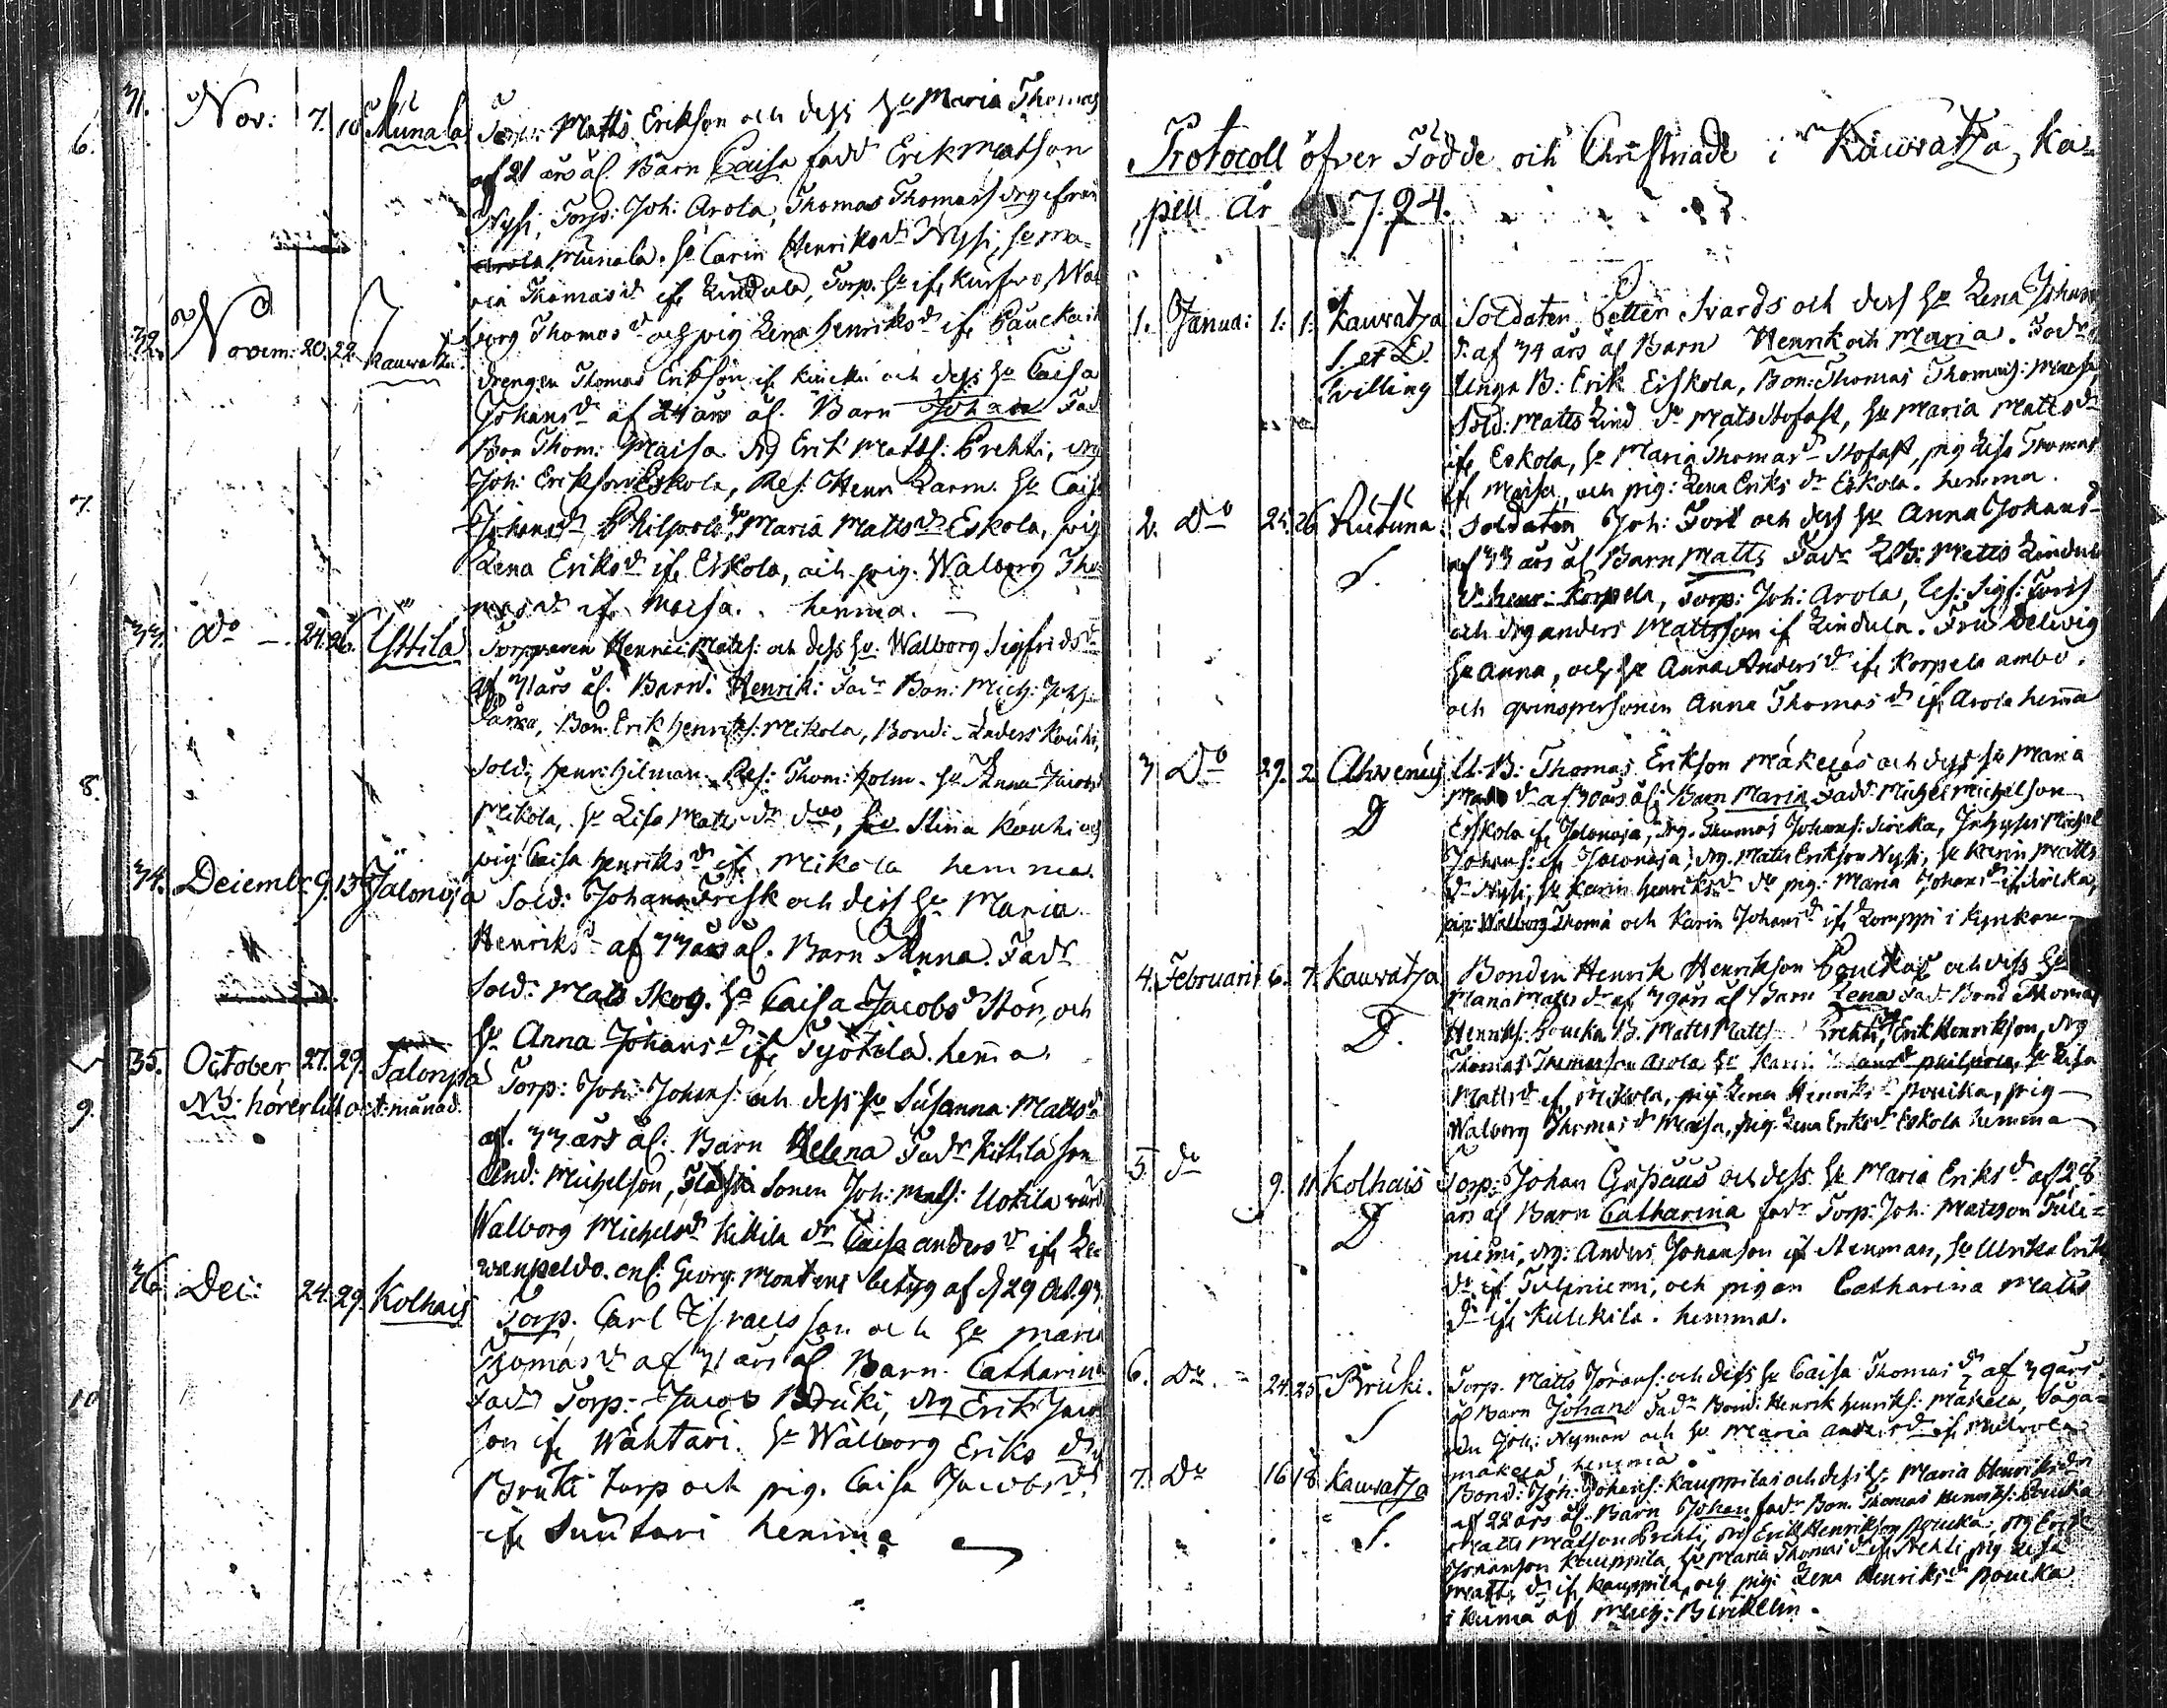 31. Nov: 7. 10 Munala Torp: Matts Erikson och dess hu Maria Thomas
6.
af 21 års ål. Barn Caisa fadd Erik Matson
Nysi, Torp: Joh: Arola, Thomas Thomass drg ifrån
Munala. hu Carin Henriksdr Nysi, hu Ma-
ria Thomasdr if Lindula, Torp. hu if
borg Thomasdr och pig Lena Henriksdr if Paucka
32. Novem: 20. 22. Kauvatza
drengen Thomas Erikson if och dess hu Caisa
Johansdr af 24 års ål. Barn Johan Fad
Bon Thom: Maisa drg Erik Matts: Prehti, drg
7.
Joh: Erikson Eskola, Res: Henr Larm. hu Caisa
Johansdr Philpola, hu Maria Mattsdr Eskola, pig
Lena Eriksdr if Eskola, och pig. Walborg Tho
masdr if Maisa. hemma.
33. do 24. 26. Yttilä Torpparen Henric Mats: och dess hu. Walborg Sigfridsdr
af 31 års ål. Barn: Henrik: Fadr Bon: Mich: Johs:
Bon. Erik Henriks: Mikola, Bond: Kouhi,
8.
Sold: Henr: Hilman. Res: Thom: Holm. hu Anna Jacobsd
Mikola, hu Lisa Matts dr do, hu Stina Kouhi och
pig: Caisa Henriksdr if Mikola hemma
34. Decembr 9. 13 Jalonoja Sold: Johan Frisk och dess hu Maria
Henriksd af 33 års ål. Barn Anna. Fadr
Sold: Mats Skog. hu Caisa Jacobsd Stör, och
hu Anna Johansd if Työtilä. hemma.
35. October 27. 29. Jalonoja Torp: Joh: Johans: och dess hu Susanna Mattsd
9. NB: hörer till oct: månad.
af. 33 års ål. Barn Helena Fadr Kittilä son
And: Michelson, Sonen Joh: Mats: Uotila
Walborg Michelsdr Kittilä dr Caisa Andersdr if
enl: Georg: Montens betyg af d 29 Oct. 93.
36. Dec: 24. 29. Kolhais Torp. Carl Israelsson och hu Maria
Thomasdr af 31 års ål Barn. Catharina
10
Fadr Torp: Jacob Brüki, drg Erik Jacob
son if Wähtäri. hu Walborg Eriks dr
Brüki torp och pig. Caisa Jacobsdr
if Suutari hemma

Protocoll öfver Födde och Christnade i Kauvatza, Ka-
pell År 1794.
1. Janua: 1. 1. Kauvatza Soldaten Petter Svärds och dess hu Lena Johans
S. et D. d. af 34 års ål Barn Henrik och Maria. Fadr
tvilling Unga B: Erik Eskola, Bon: Thomas Thomass: Maisa,
Sold: Matts Lind do Mats Stofast, hu Maria Mattsdr
if Eskola, hu Maria Thomasdr Stofast, pig Lisa Thomas
if Maisa, och pig: Lena Eriks dr Eskola. hemma.
2. do 24. 26 Ruttuna: Soldaten Joh: Fort och dess hu Anna Johansd
S. af 33 års ål Barn Matts Fadr Matts Lindula
Henr: Korpela, Torp: Joh: Arola, Res: Sigf: Forss
och drg Anders Mattsson if Lindula. Fru
hu Anna, och hu Anna Andersdr if Korpela ambo.
och qvinspersonen Anna Thomasdr if Arola hemma
3 do 29. 2 Ahvenus U. B: Thomas Erikson Mäkeläs och dess hu Maria
D Matsdr af 30 års ål: Barn Maria Fadd: Michel Michelson
Eskola if Jalonoja, drg. Thomas Johans: Sirkka, Inhyses Michel
Johans: if Jalonoja, drg. Matts Erikson Nysi, hu Karin Matts
dr Nysi, hu Karin Henriksdr do pig: Maria Johansdr if Sirkka,
pig: Walborg Thoma och Karin Johansd if Lomppi i Kyrkan
4. Februari 6. 7. Kauvatza Bonden Henrik Henrikson Pouckas och dess hu
D. Maria Matts dr af 39 års ål Barn Lena Fadr Bond Thomas
Henriks: Poucka, B. Matts Matts Prehti, Erik Henrikson, drg
Thomas Thomasson Arola hu Karin Philpola, hu Lisa
Mattsd if Mikola, pig Lena Henriks Poucka, pig
Walborg Thomasd Maisa, pig Lena Eriksd Eskola hemma
5. do 9. 11 Kolhais Torp: Johan Gustafs och dess hu Maria Eriksd af 28
D års ål Barn Catharina fadr Torp: Joh: Matsson Tuli-
niemi, drg: Anders Johanson if Stenman, hu Ulrika Eriks
dr if Tuliniemi, och pigan Catharina Matts
dr if Kulckila. hemma.
6. do 24. 25 Brüki. Torp. Matts Jörans: och dess hu Caisa Thomasdr af 39 års
S ål Barn Johan Fadr Bond: Henrik Henriks: Mäkelä,
Joh: Nyman och hu Maria Andersdr if
Mäkelä, hemma
7. do 16 18 Kauvatza Bond: Joh: Johans: Kauppilas och dess hu Maria Henriksdr
S. af 22 års ål. Barn Johan fadr Bon. Thomas Henriks: Poucka
Matts Matson Prehti, drg Erik Henrikson Poucka, drg Erik
Johanson Kauppila, hu Maria Thomasdr if Prehti pig Lisa
Matts dr if Kauppila, och pig: Lena Henriksd Poucka
i Kumo af Mich: Birckelin.